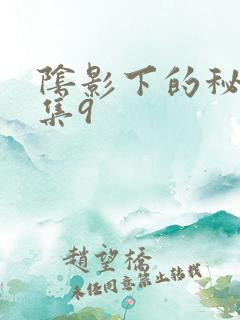 陰影下的秘
集9
趙望橋
未经同意禁止转载